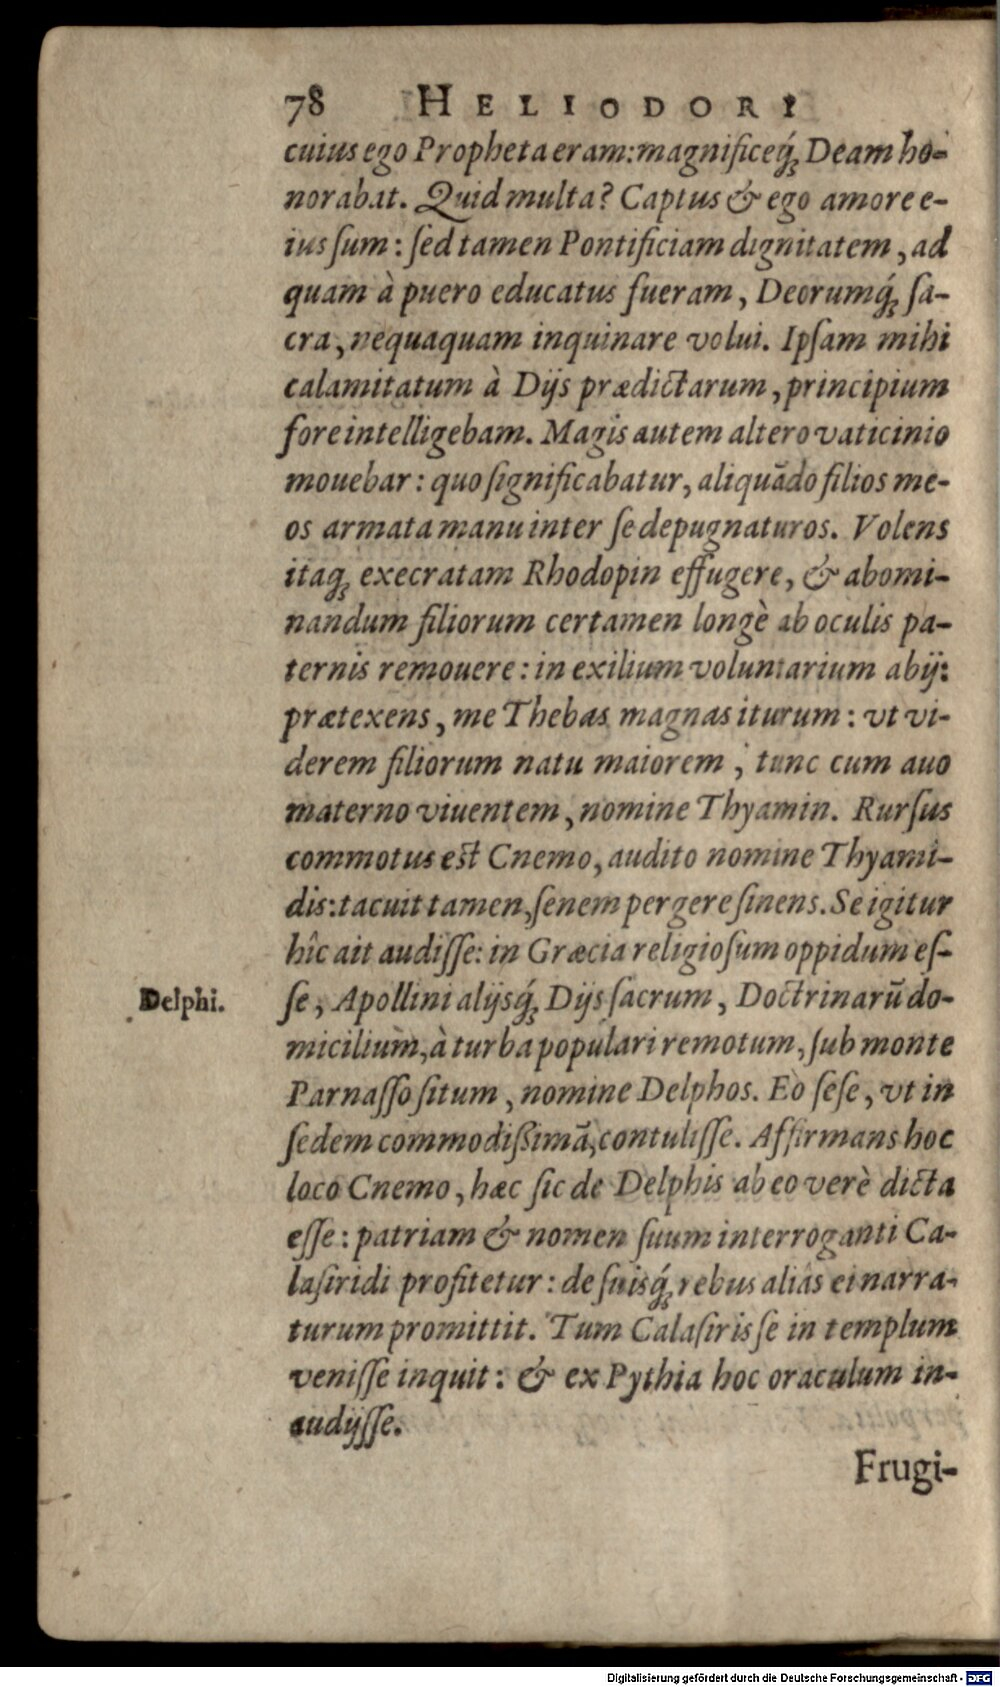 78 HELIODORI
cuius ego Propheta eram: magnificeq́ꝫ Deam ho-
norabat. Quid multa? Captus & ego amore e-
ius ſum: ſed tamen Pontificiam dignitatem, ad
quam à puero educatus fueram, Deorumq́ꝫ ſa-
cra, nequaquam inquinare volui. Ipſam mihi
calamitatum à Dijs prædictarum, principium
fore intelligebam. Magis autem altero vaticinio
mouebar: quo ſignificabatur, aliquādo filios me-
os armata manu inter ſe depugnaturos. Volens
itaqꝫ execratam Rhodopin effugere, & abomi-
nandum filiorum certamen longè ab oculis pa-
ternis remouere: in exilium voluntarium abij:
prætexens, me Thebas magnas iturum: vt vi-
derem filiorum natu maiorem, tunc cum auo
materno viuentem, nomine Thyamin. Rurſus
commotus est Cnemo, audito nomine Thyami-
dis: tacuit tamen, ſenem pergere ſinens. Se igitur
hîc ait audiſſe: in Græcia religioſum oppidum eſ-
Delphi.
ſe, Apollini alijsq́ꝫ Dijs ſacrum, Doctrinarū do-
micilium, à turba populari remotum, ſub monte
Parnaſſo ſitum, nomine Delphos. Eò ſeſe, vt in
ſedem commodißimā, contuliſſe. Affirmans hoc
loco Cnemo, hæc ſic de Delphis ab eo verè dicta
eſſe: patriam & nomen ſuum interroganti Ca-
laſiridi profitetur: de ſuisq́ꝫ rebus aliàs ei narra-
turum promittit. Tum Calaſiris ſe in templum
veniſſe inquit: & ex Pythia hoc oraculum in-
audijſſe.
Frugi-
Digitalisierung gefördert durch die Deutsche Forschungsgemeinschaft - DFG